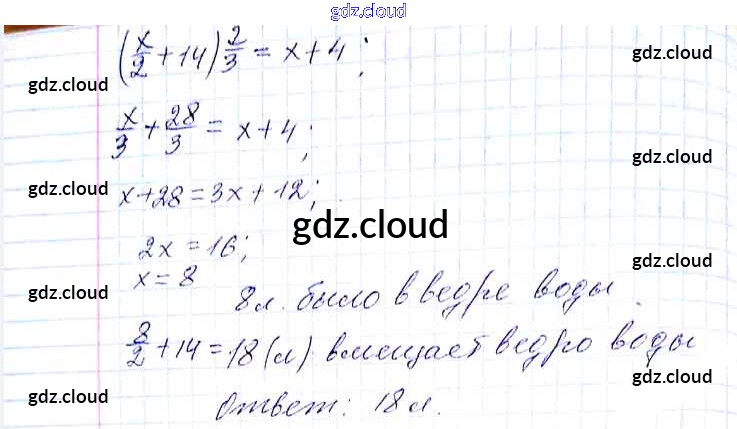 gdz.cloud
(x/2 + 14) 2/3 = x + 4;
gdz.cloud gdz.cloud
x/3 + 28/3 = x + 4;
gdz.cloud
x + 28 = 3x + 12;
gdz.cloud
gdz.cloud
2x = 16;
gdz.cloud
x = 8
8 л. было в ведре воды.
gdz.cloud
8/2 + 14 = 18 (л) вмещает ведро воды
gdz.cloud
Ответ: 18 л.
gdz.cloud